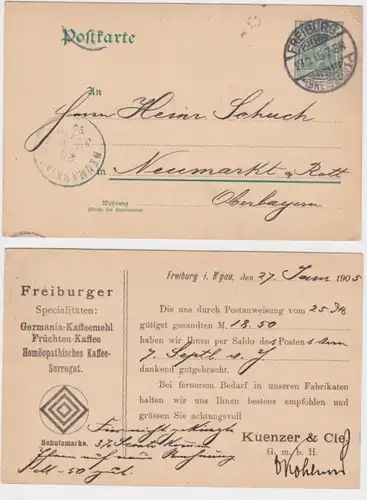 Postkarte
FREIBURG
(BREISGAU)
An
Herrn Heinr. Schuch
in Neumarkt a/Rott
Wohnung
(Straße und Hausnummer)
Oberbayern
NEUMARKT
Freiburg i. B'gau, den 27. Jan 1905
Freiburger
Specialitäten:
Germania-Kaffeemehl
Früchten-Kaffee
Homöopathisches Kaffee-
Surrogat.
Schutzmarke.
Die uns durch Postanweisung vom 25 ds
gütigst gesandten M. 18.50
haben wir Ihnen per Saldo des Postens vom
7. Septb. v. J
dankend gutgebracht.
Bei fernerem Bedarf in unseren Fabrikaten
halten wir uns Ihnen bestens empfohlen und
grüssen Sie achtungsvoll
Kuenzer & Cie
G. m. b. H.
3% Sconto
Ihnen auf neue Rechnung
M -50 gut.